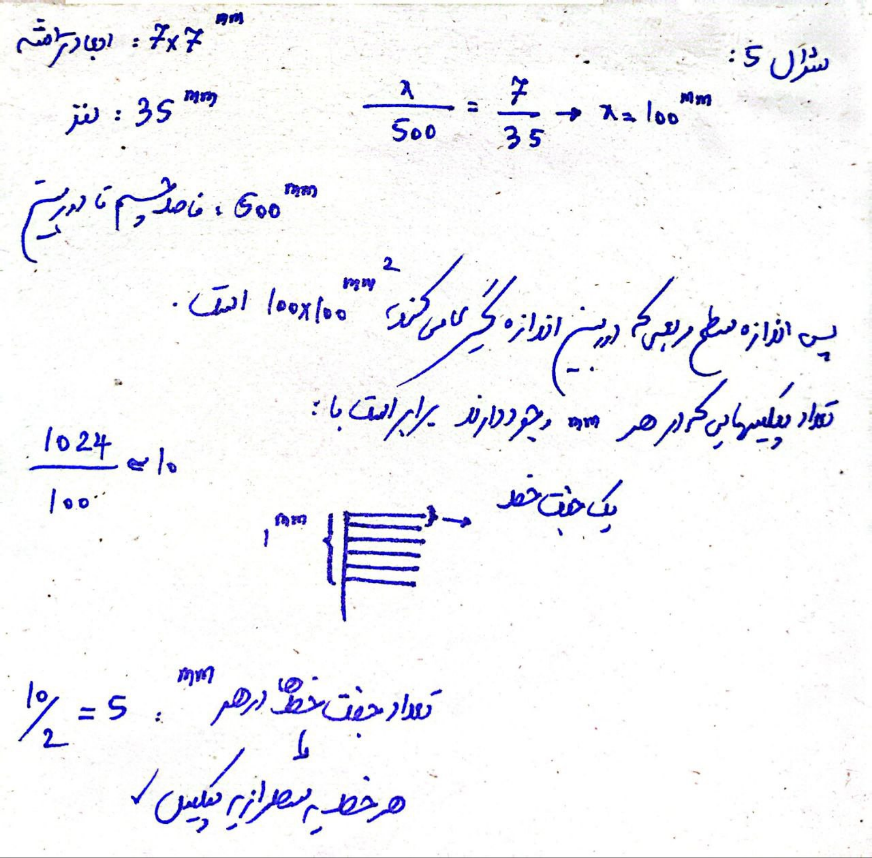 سؤال 5:
ابعاد تراشه : 7x7 mm
لنز : 35 mm
x/500 = 7/35 → x = 100 mm
فاصله جسم تا دوربین : 500 mm
پس اندازه سطح مربعی که دوربین اندازه گیری می کند، 100x100 mm² است.
تعداد پیکسهایی که در هر mm وجود دارند برابر است با :
1024/100 ≈ 10
یک جفت خط
1 mm
تعداد جفت خط ها در هر mm : 10/2 = 5
هر خط یه سطر از یه پیکسل ✓